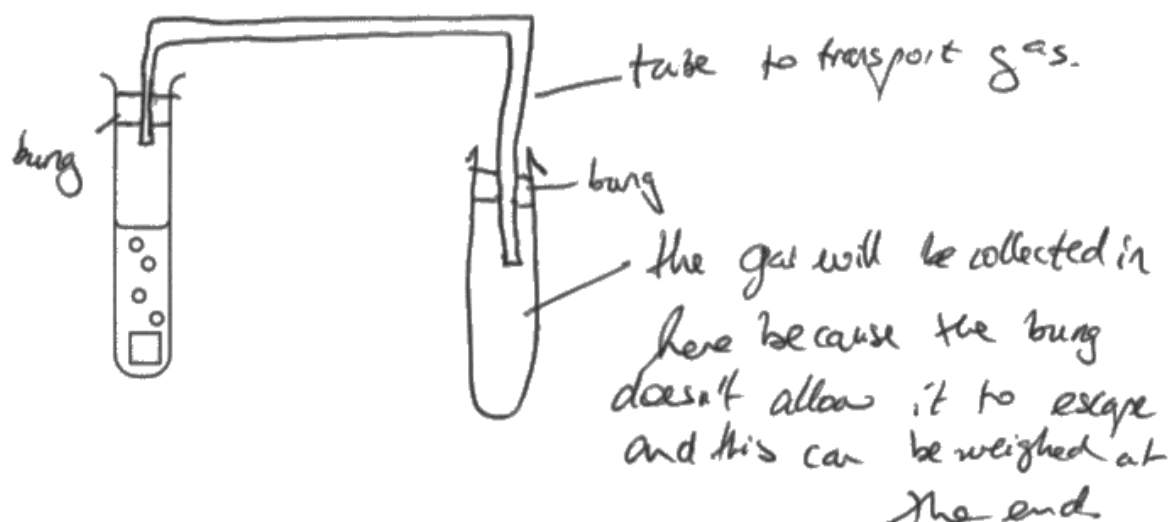 tube to transport gas.
bung
bung
the gas will be collected in
here because the bung
doesn't allow it to escape
and this can be weighed at
the end